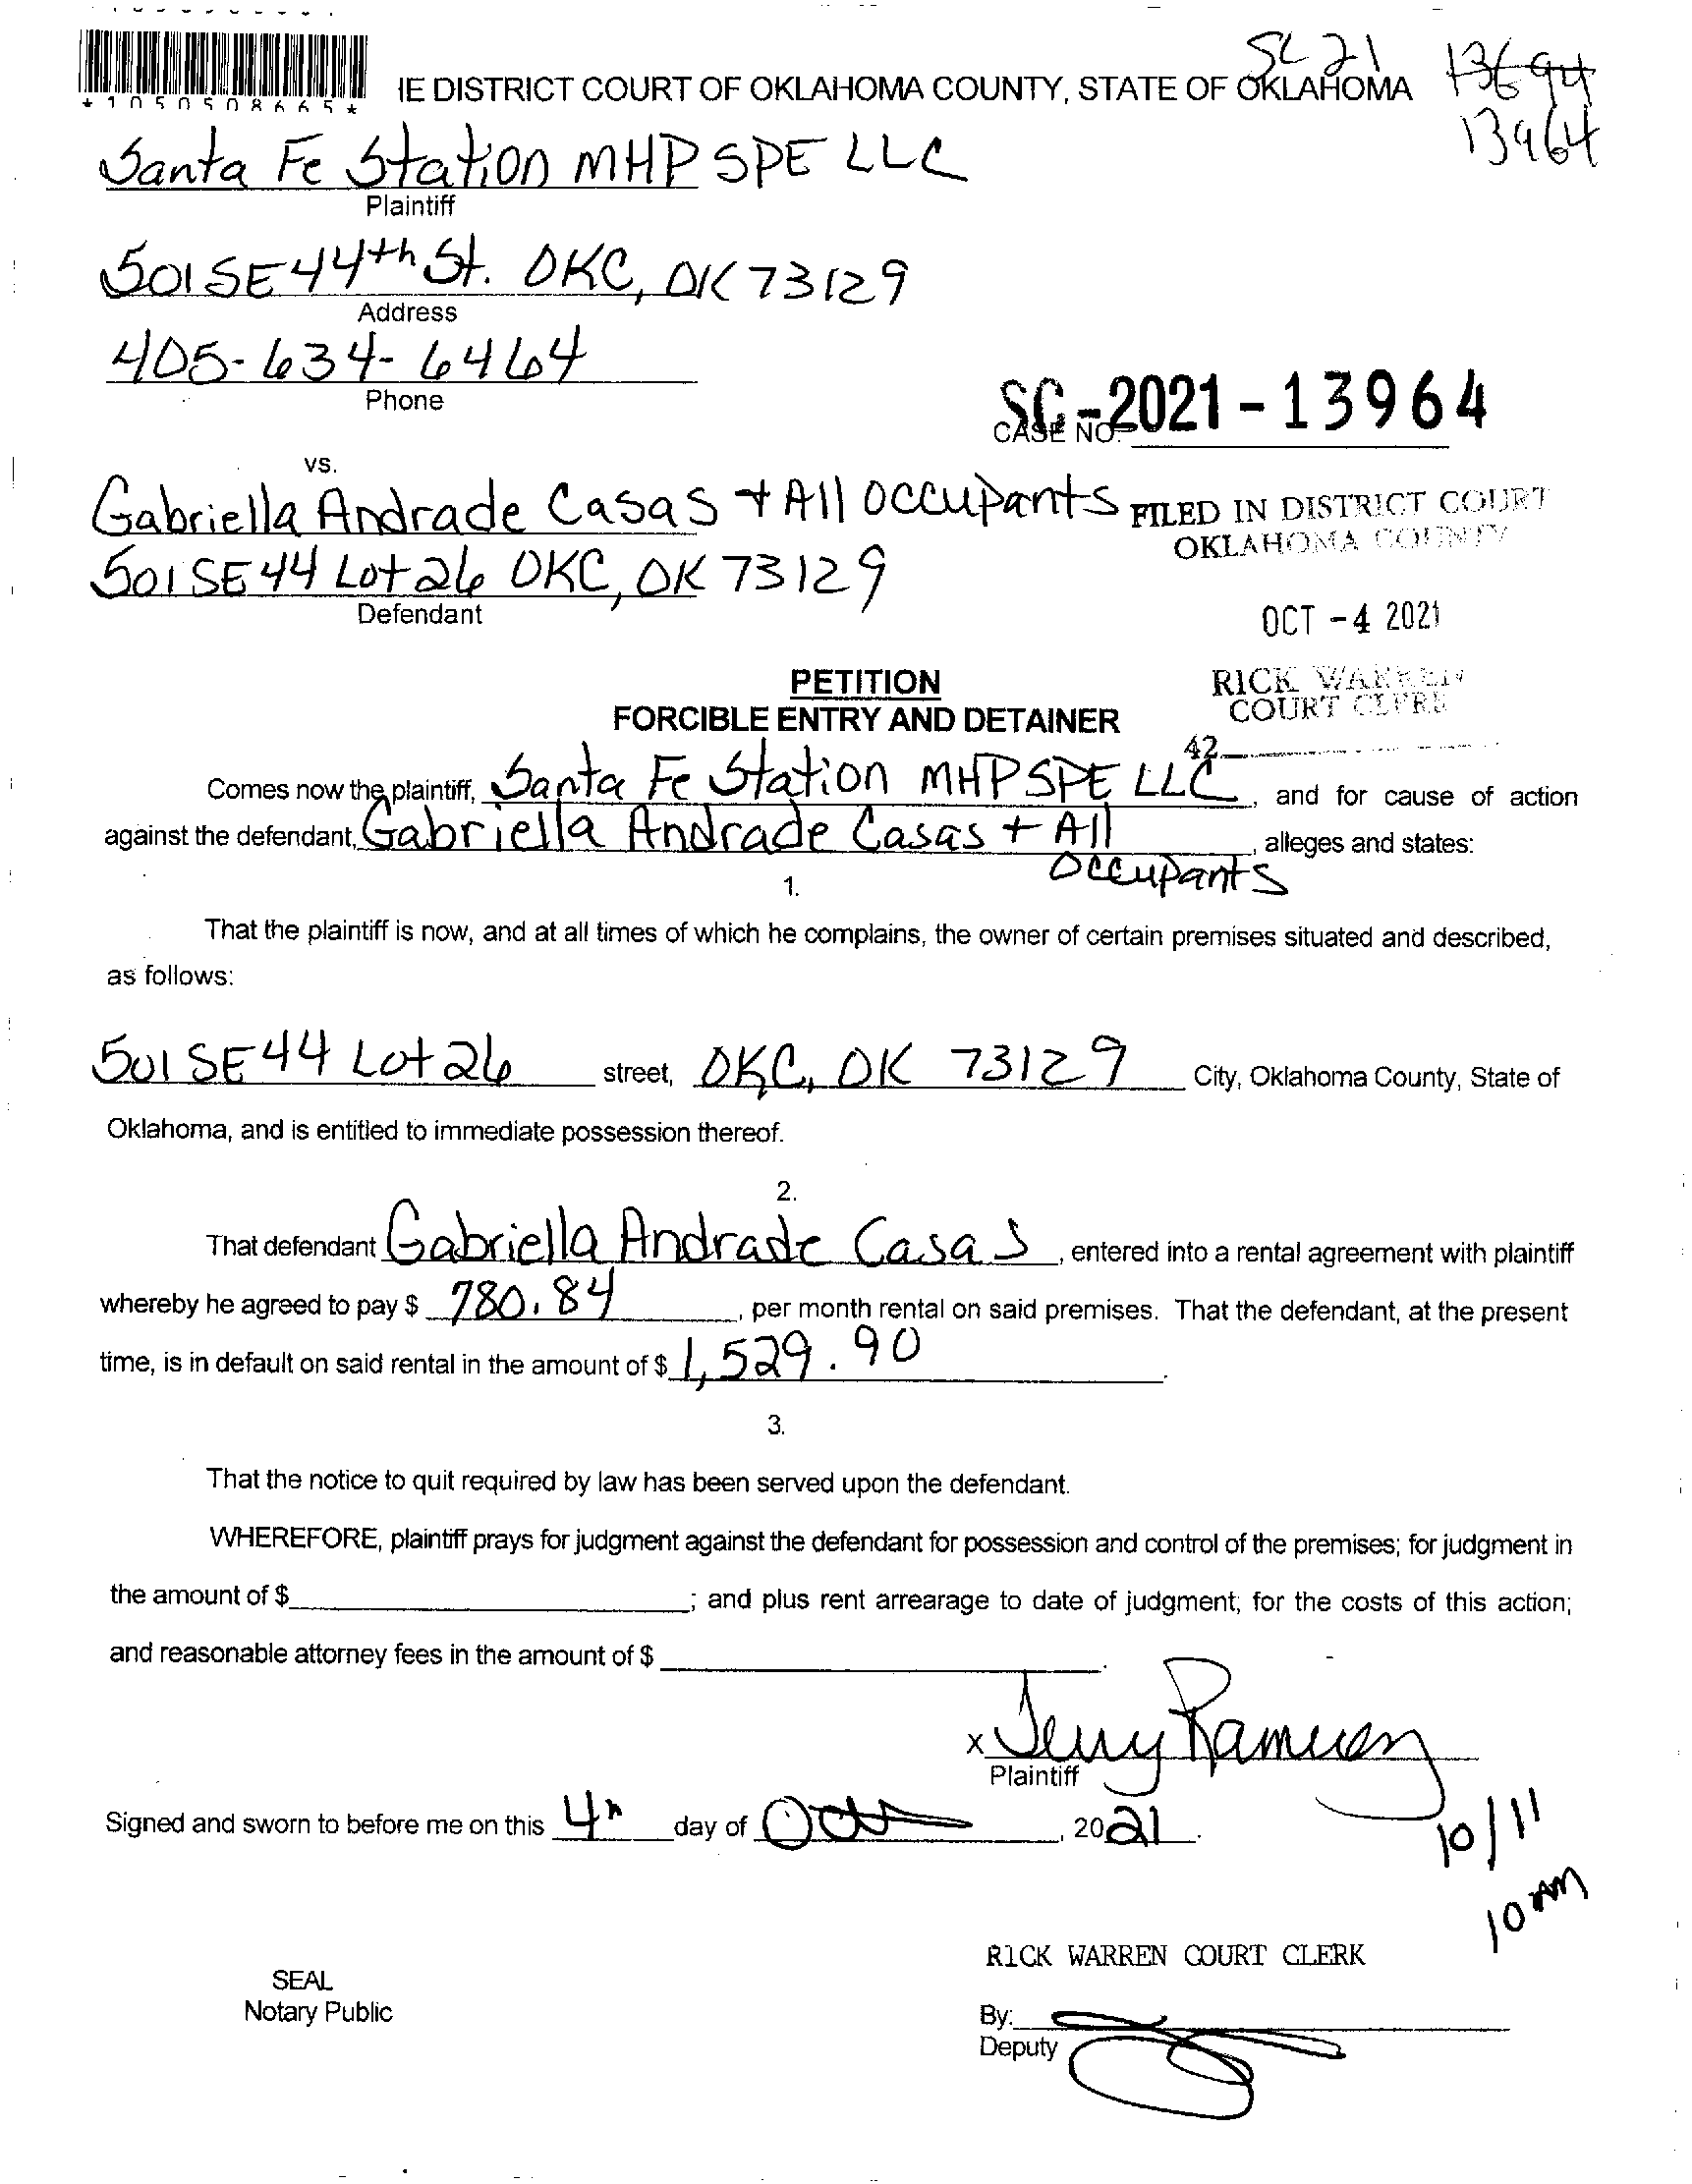 SC 21 13694
*1050508665*
IE DISTRICT COURT OF OKLAHOMA COUNTY, STATE OF OKLAHOMA
13964
Santa Fe Station MHP SPE LLC
Plaintiff
501 SE 44th St. OKC, OK 73129
Address
405-634-6464
Phone
SC-2021-13964
CASE NO.
vs.
Gabriella Andrade Casas + All Occupants
FILED IN DISTRICT COURT
OKLAHOMA COUNTY
501 SE 44 Lot 26 OKC, OK 73129
Defendant
OCT -4 2021
PETITION
RICK WARREN
FORCIBLE ENTRY AND DETAINER
COURT CLERK
42
Comes now the plaintiff, Santa Fe Station MHP SPE LLC, and for cause of action
against the defendant, Gabriella Andrade Casas + All Occupants, alleges and states:
1.
That the plaintiff is now, and at all times of which he complains, the owner of certain premises situated and described,
as follows:
501 SE 44 Lot 26 street, OKC, OK 73129 City, Oklahoma County, State of
Oklahoma, and is entitled to immediate possession thereof.
2.
That defendant Gabriella Andrade Casas, entered into a rental agreement with plaintiff
whereby he agreed to pay $ 780.84, per month rental on said premises. That the defendant, at the present
time, is in default on said rental in the amount of $ 1,529.90.
3.
That the notice to quit required by law has been served upon the defendant.
WHEREFORE, plaintiff prays for judgment against the defendant for possession and control of the premises; for judgment in
the amount of $ ; and plus rent arrearage to date of judgment; for the costs of this action;
and reasonable attorney fees in the amount of $ .
x Jerry Ramirez
Plaintiff
Signed and sworn to before me on this 4th day of Oct, 2021.
10/11
10 AM
RICK WARREN COURT CLERK
SEAL
Notary Public
By:
Deputy